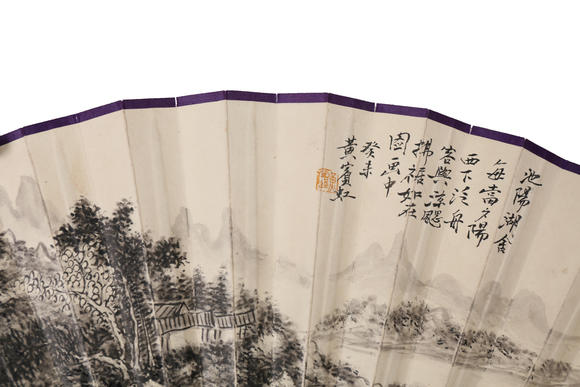 池陽湖舍
每當夕陽
西下泛舟
容與涼颸
拂裾如在
圖画中
癸未
黃賓虹